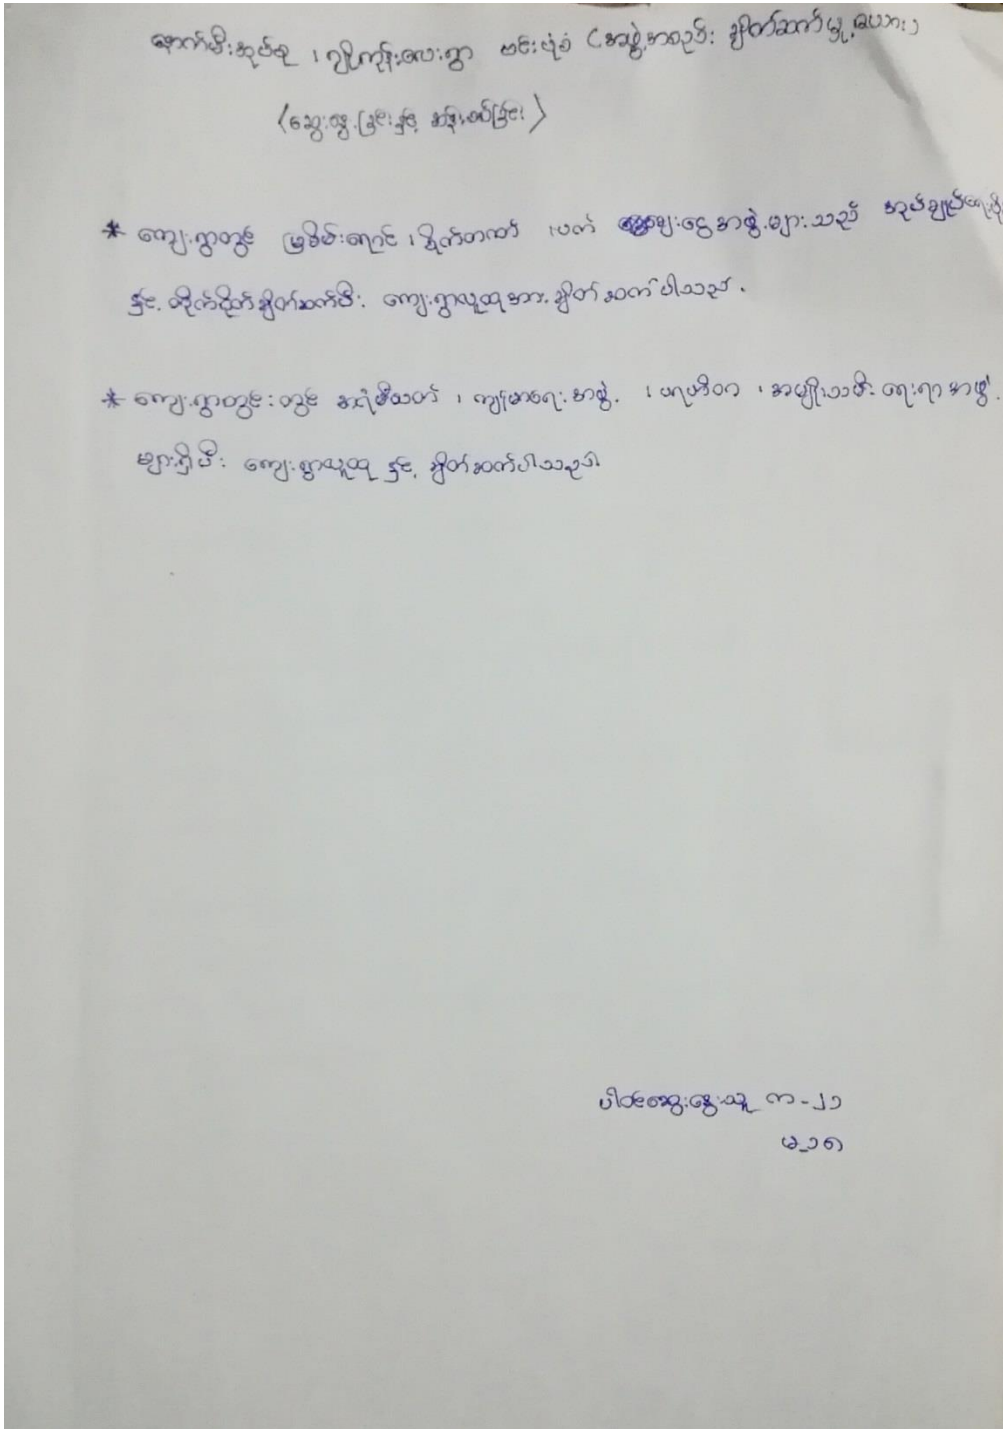 နောက်မီးအုပ်စု ၊ ဂျိုကုန်းလေးရွာ ဗင်းပုံစံ (အဖွဲ့အစည်း ချိတ်ဆက်မှု့ဇယား)
(ဆွေးနွေးခြင်းနှင့် ဆန်းစစ်ခြင်း)
* ကျေးရွာတွင် မြစိမ်းရောင် ၊ စိုက်တတ် ၊ ပက် ချေးငွေအဖွဲ့များသည် အုပ်ချုပ်ရေးမှူး
နှင့် တိုက်ရိုက်ချိတ်ဆက်ပီး ကျေးရွာလူထုအား ချိတ်ဆက်ပါသည်။
* ကျေးရွာတွင်းတွင် အရံမီးသတ် ၊ ကျန်းမာရေးအဖွဲ့ ၊ ပရဟိတ ၊ အမျိုးသမီးရေးရာအဖွဲ့
များရှိပီး ကျေးရွာလူထုနှင့် ချိတ်ဆက်ပါသည်။
ပါဝင်ဆွေးနွေးသူ က - ၂၁
မ - ၁၈